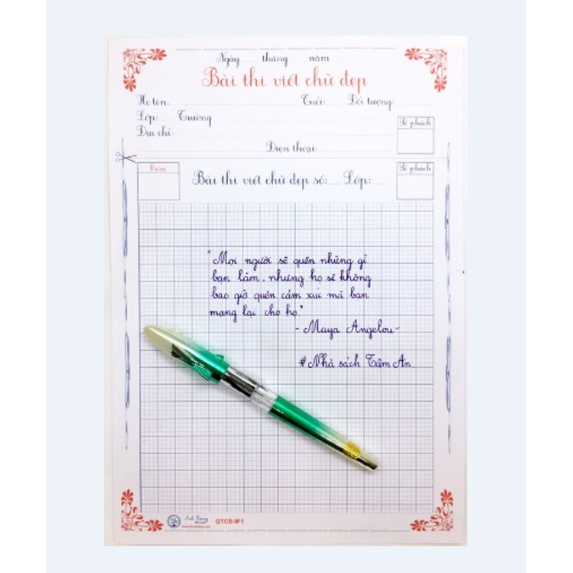 Ngày tháng năm
Bài thi viết chữ đẹp
Họ tên: Tuổi: Đối tượng:
Lớp: Trường
Địa chỉ: Số phách
Điện thoại:
Điểm Bài thi viết chữ đẹp số: Lớp: Số phách
"Mọi người sẽ quên những gì
bạn làm, nhưng họ sẽ không
bao giờ quên cảm xúc mà bạn
mang lại cho họ"
- Maya Angelou -
# Nhà sách Tâm An